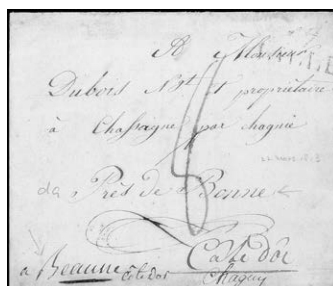 A Monsieur
Dubois Nst et propriétaire
à Chassagne par chagnie
da Près de Bonne
Cote d'or
a Beaune Cote dor
Chagny